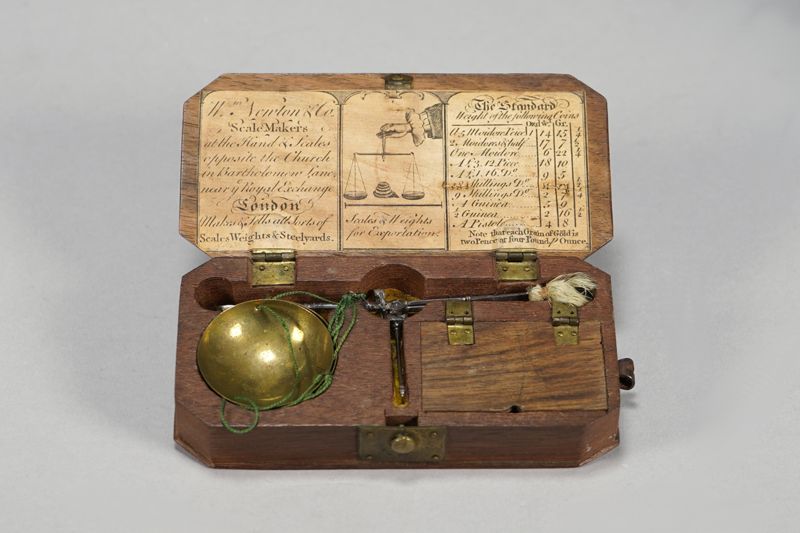 Wm. Newton & Co.
Scale Makers
at the Hand & Scales
opposite the Church
in Bartholomew Lane,
near ye Royal Exchange
London
Makes & Sells all Sorts of
Scales Weights & Steelyards.
Scales & Weights
for Exportation.
The Standard
Weight of the following Coins
Dwt. Gr.
14 15 1/4
2 Moidores & half 17 7
One Moidore 6 22 1/4
A £3,12 Piece 18 10
A £1,16 Do. 9 5
Shillings Do.
9 Shillings Do.
A Guinea 5 9
1/2 Guinea 2 16 1/2
A Pistol 4 8
Note that each Grain of Gold is
two Pence or four Pound, p Ounce.